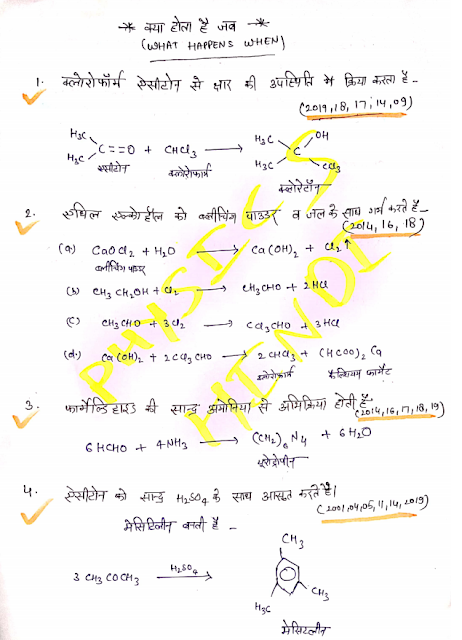 * क्या होता है जब *
(WHAT HAPPENS WHEN)
1. क्लोरोफॉर्म ऐसीटोन से क्षार की उपस्थिति में क्रिया करता है -
(2019, 18, 17, 14, 09)
H₃C H₃C C=O + CHCl₃ → H₃C H₃C C OH CCl₃
ऐसीटोन क्लोरोफार्म क्लोरेटॉन
2. एथिल एल्कोहॉल को ब्लीचिंग पाउडर व जल के साथ गर्म करते है -
(2014, 16, 18)
(a) CaOCl₂ + H₂O → Ca(OH)₂ + Cl₂↑
ब्लीचिंग पाउडर
(b) CH₃CH₂OH + Cl₂ → CH₃CHO + 2HCl
(c) CH₃CHO + 3Cl₂ → CCl₃CHO + 3HCl
(d) Ca(OH)₂ + 2CCl₃CHO → 2CHCl₃ + (HCOO)₂Ca
क्लोरोफार्म कैल्शियम फार्मेट
3. फार्मेल्डिहाइड की सान्द्र अमोनिया से अभिक्रिया होती है -
(2014, 16, 17, 18, 19)
6HCHO + 4NH₃ → (CH₂)₆N₄ + 6H₂O
यूरोट्रोपीन
4. ऐसीटोन को सान्द्र H₂SO₄ के साथ आसुत करते है।
(2001, 04, 05, 11, 14, 2019)
मेसिटिलीन बनती है -
3 CH₃COCH₃ H₂SO₄ → CH₃ CH₃ H₃C
मेसिटलीन
PHYSICS
HINDI